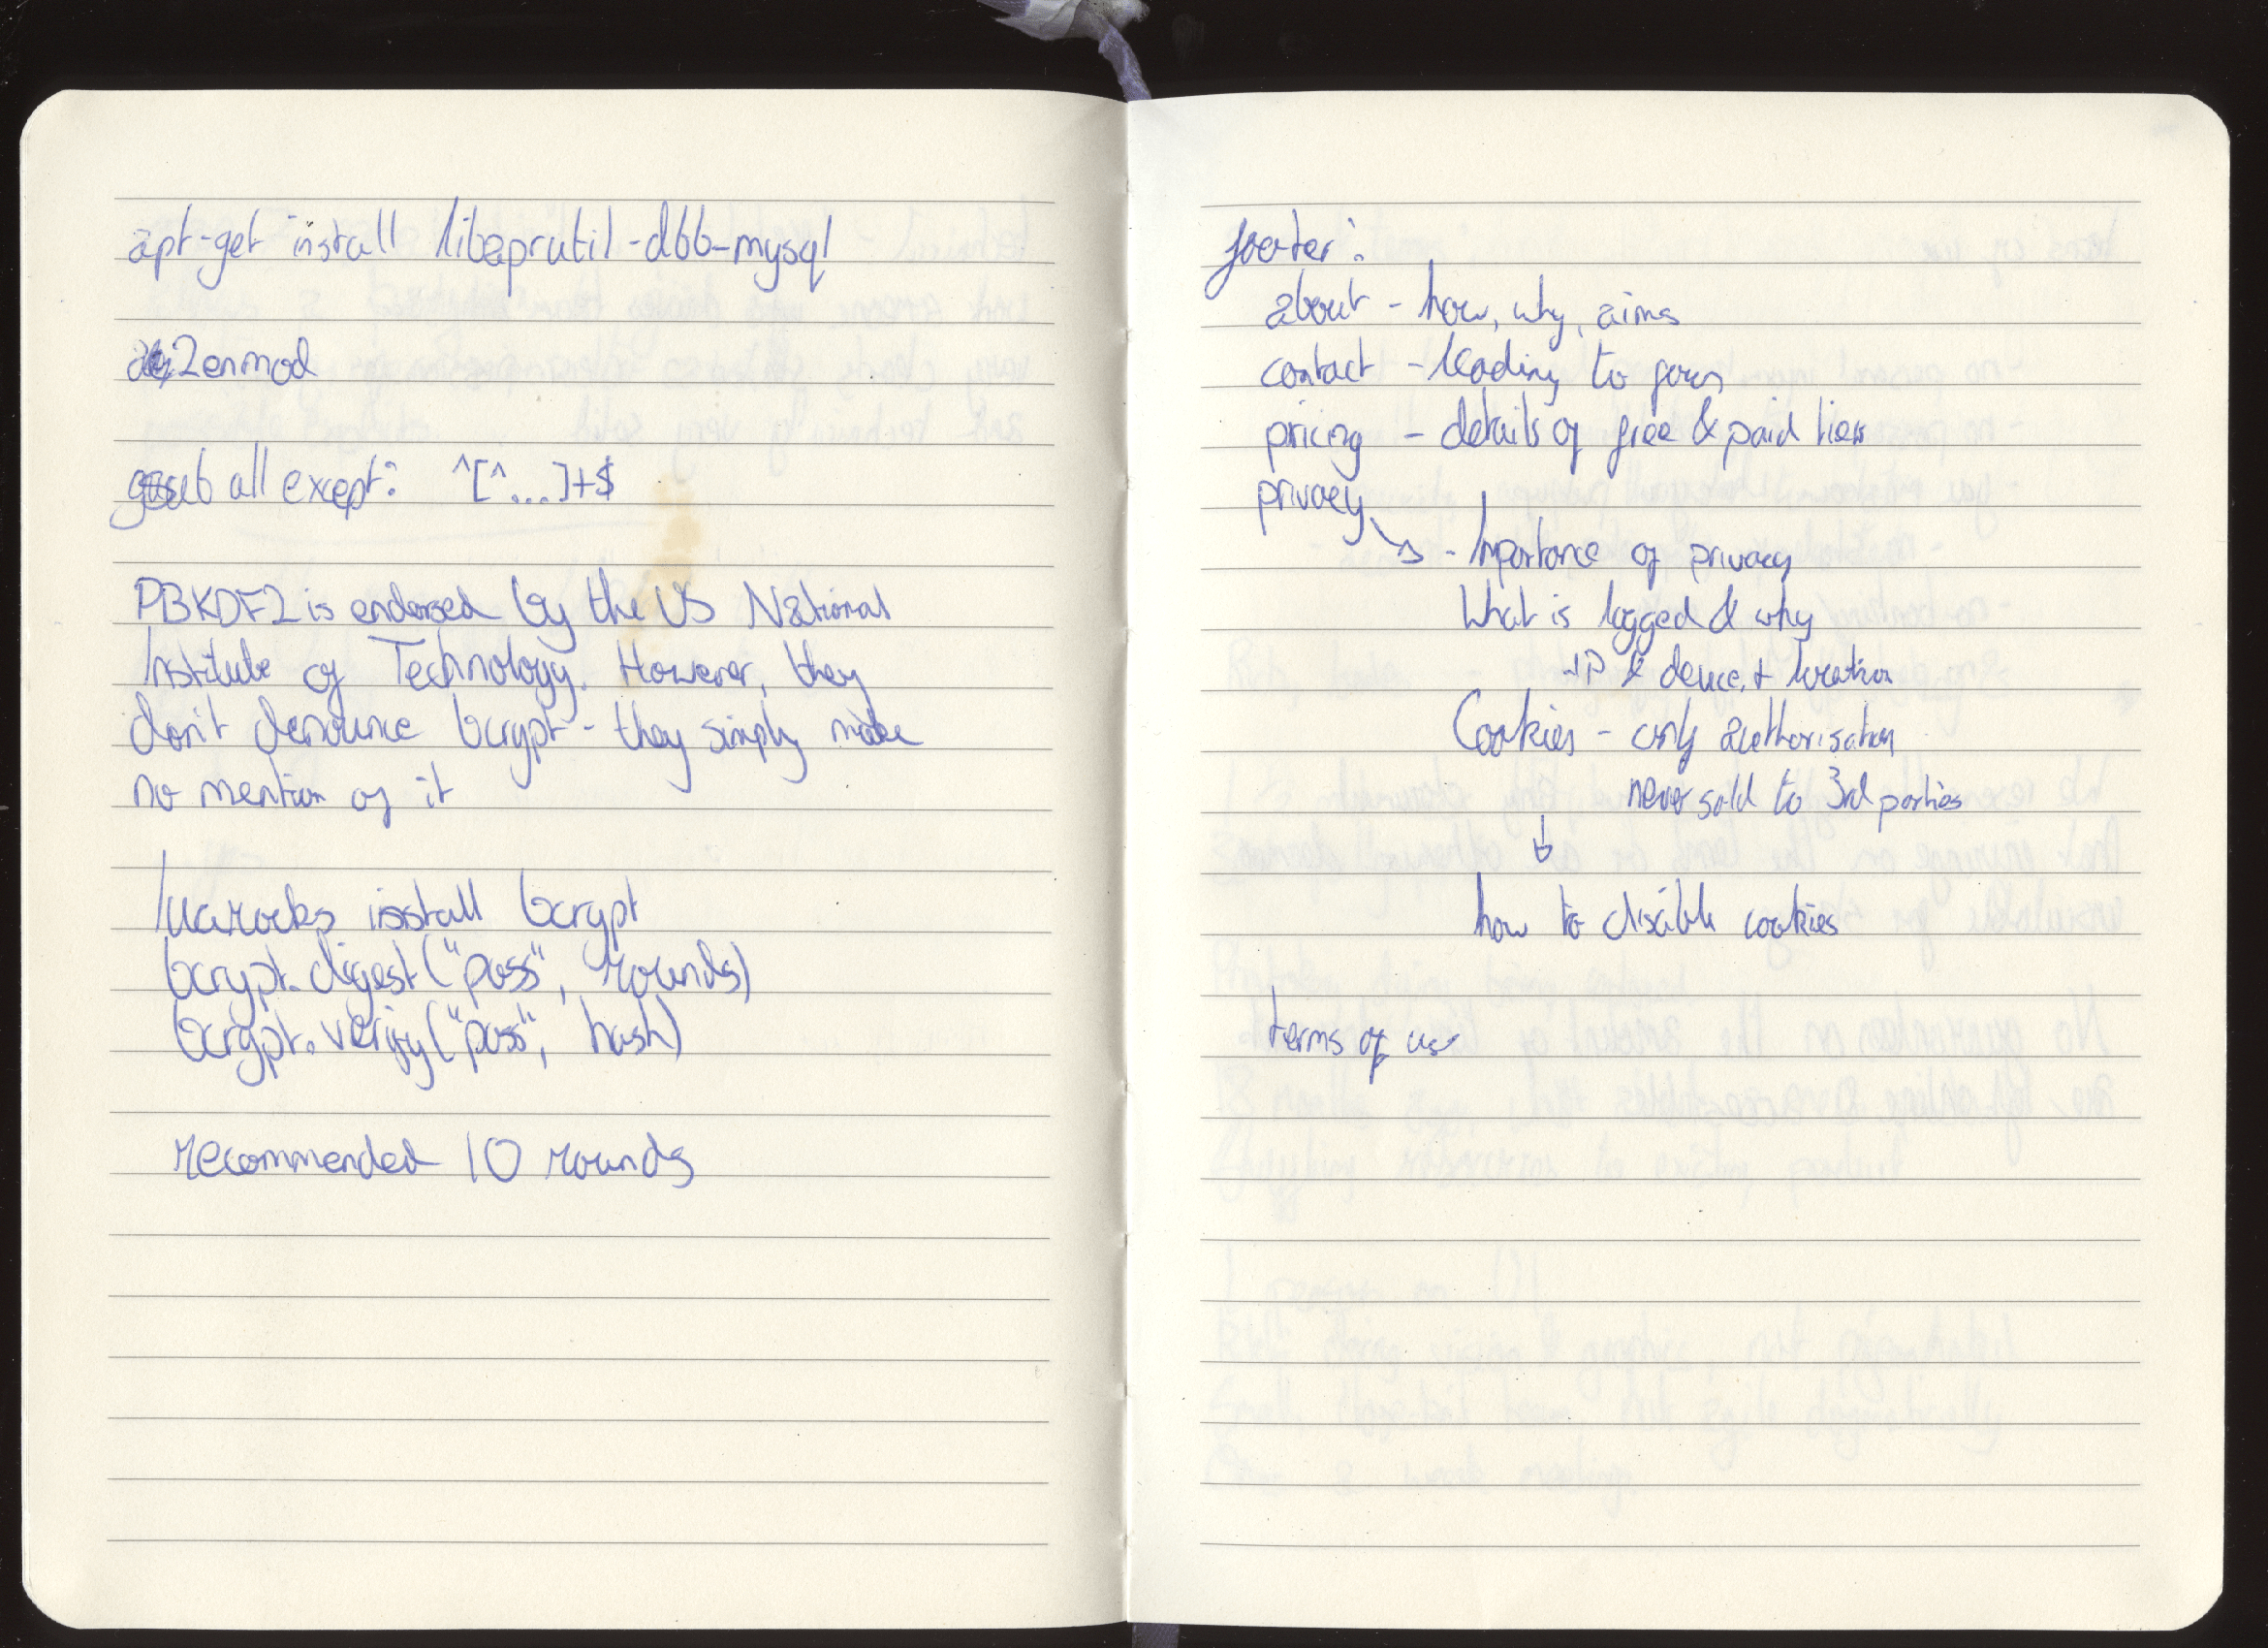 apt-get install libaprutil-dbb-mysql
a2enmod
gsub all except: ^[^...]+$
PBKDF2 is endorsed by the US National
Institute of Technology. However, they
don't denounce bcrypt - they simply make
no mention of it
luarocks install bcrypt
bcrypt.digest("pass", rounds)
bcrypt.verify("pass", hash)
recommended 10 rounds
footer:
about - how, why, aims
contact - leading to form
pricing - details of free & paid tiers
privacy
- Importance of privacy
What is logged & why
- IP & device, + location
Cookies - only authorisation
never sold to 3rd parties
how to disable cookies
terms of use